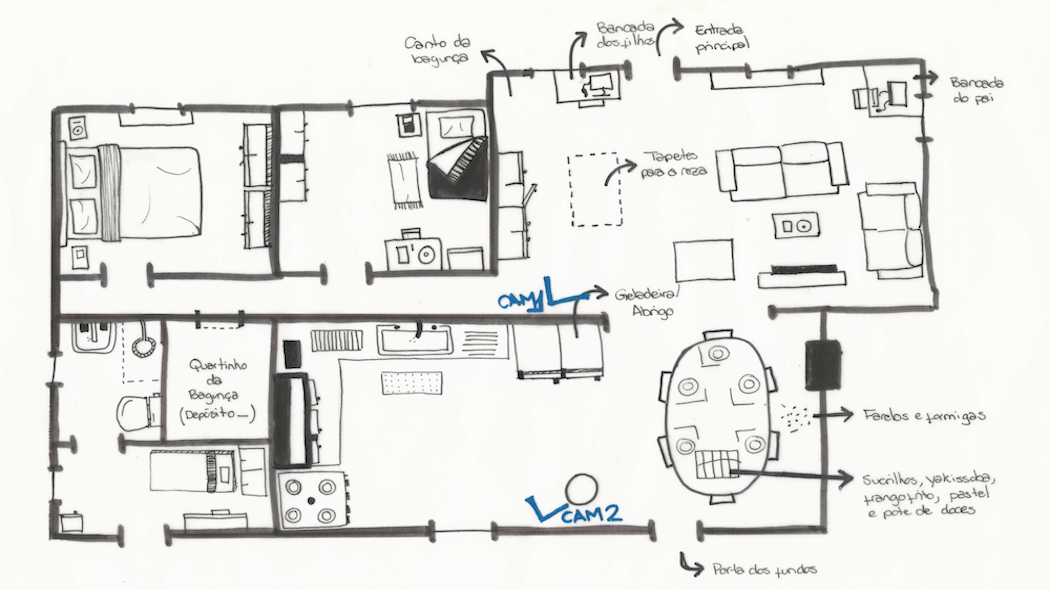 Canto da
bagunça
Bancada
dos filhos
Entrada
principal
Bancada
do pai
Tapetes
para a reza
CAM1
Geladeira/
Abrigo
Quartinho
da
Bagunça
(Depósito)
Farelos e formigas
Sucrilhos, yakissoba,
frango frito, pastel
e pote de doces
CAM2
Porta dos fundos